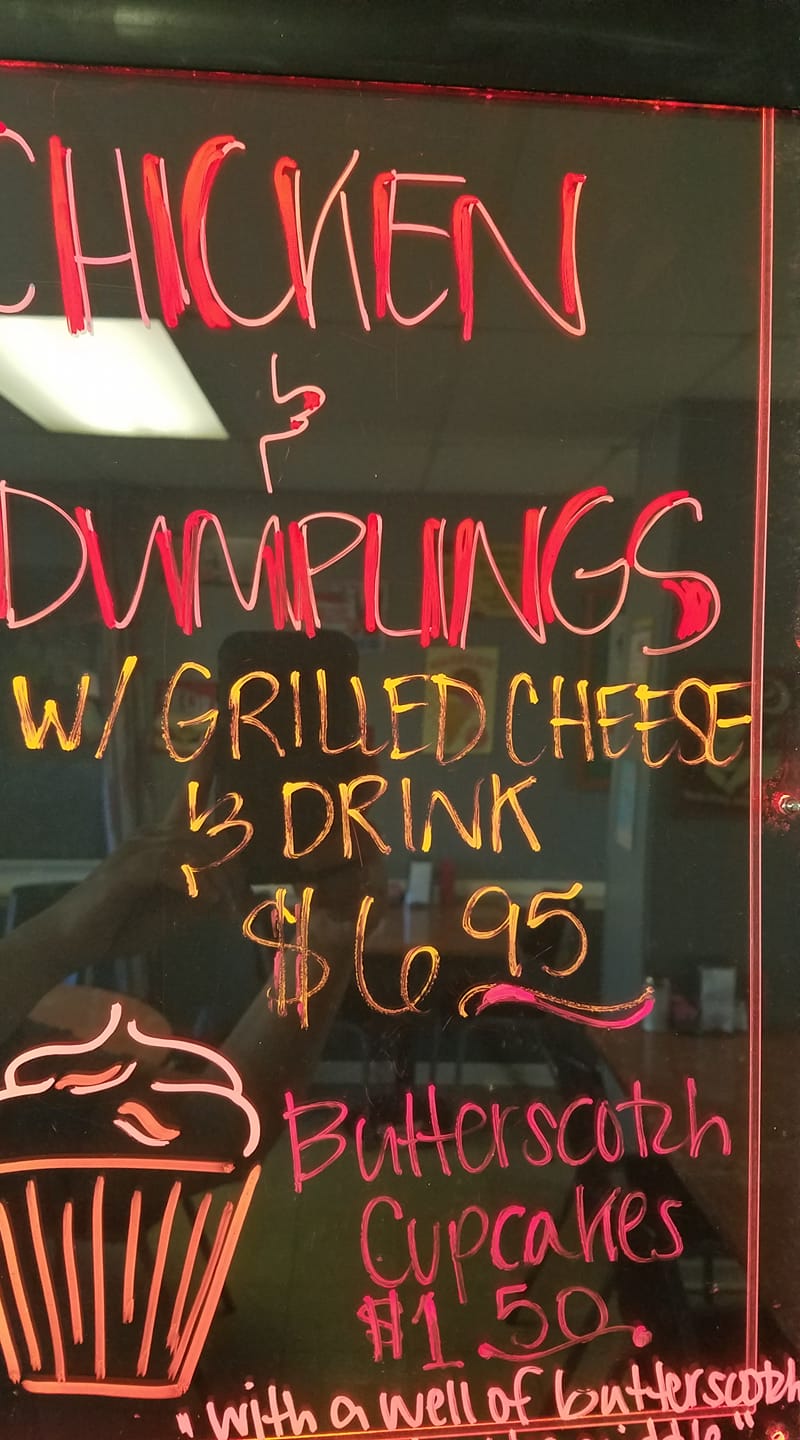 CHICKEN
&
DUMPLINGS
W/ GRILLED CHEESE
& DRINK
$6 95
Butterscotch
Cupcakes
$1 50
"with a well of butterscotch
middle"